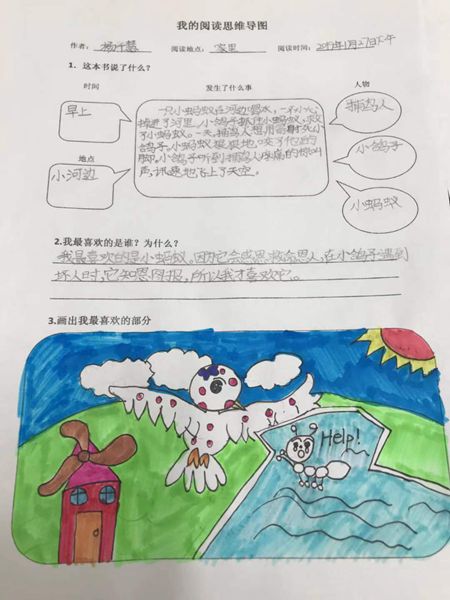 我的阅读思维导图
作者: 杨千慧 阅读地点: 家里 阅读时间: 2019年1月27日下午
1. 这本书说了什么?
时间 发生了什么事 人物
早上
地点
小河边
一只小蚂蚁在河边喝水,一不小心
掉进了河里,小鸽子救了小蚂蚁
一天,捕鸟人想用箭射死小
鸽子,小蚂蚁狠狠地咬了他的
脚,小鸽子听到捕鸟人疼痛的惊叫
声,迅速地飞上了天空。
捕鸟人
小鸽子
小蚂蚁
2.我最喜欢的是谁?为什么?
我最喜欢的是小蚂蚁,因为它会感恩救命恩人,在小鸽子遇到
坏人时,它知恩图报,所以我才喜欢它。
3.画出我最喜欢的部分
Help!